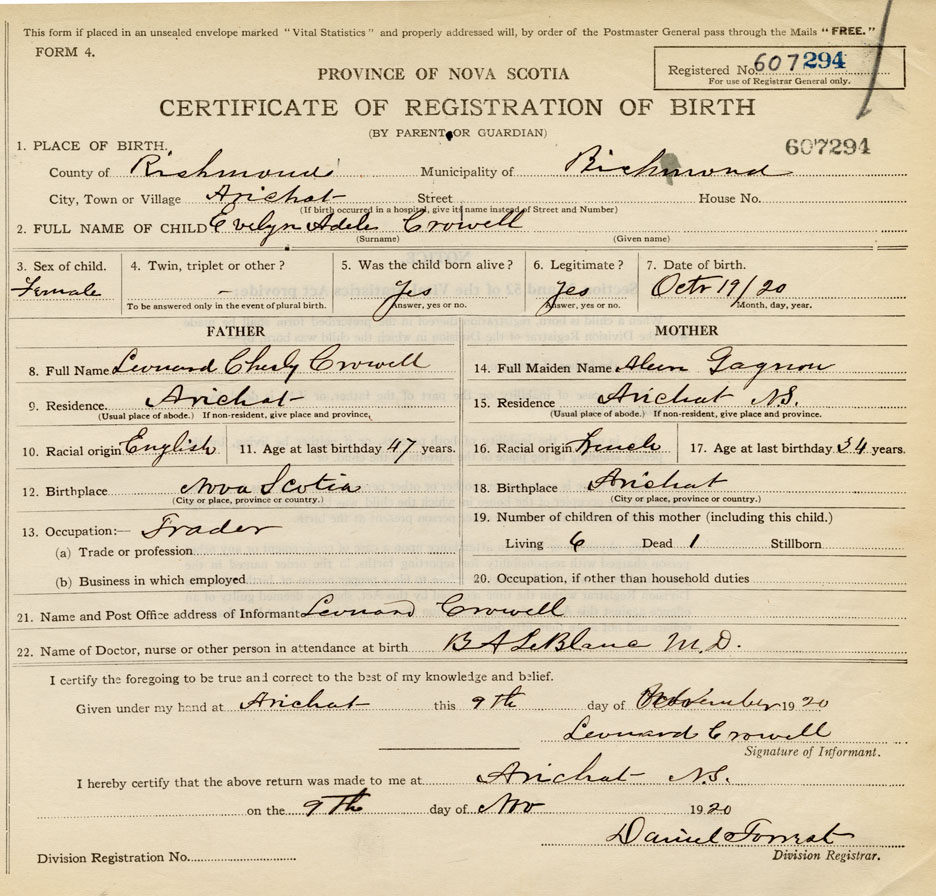 This form if placed in an unsealed envelope marked "Vital Statistics" and properly addressed will, by order of the Postmaster General pass through the Mails "FREE."
FORM 4.
Registered No. 607294
For use of Registrar General only.
PROVINCE OF NOVA SCOTIA
CERTIFICATE OF REGISTRATION OF BIRTH
(BY PARENT OR GUARDIAN)
607294
1. PLACE OF BIRTH.
County of Richmond Municipality of Richmond
City, Town or Village Arichat Street House No.
(If birth occurred in a hospital, give its name instead of Street and Number)
2. FULL NAME OF CHILD Evelyn Adele Crowell
(Surname) (Given name)
3. Sex of child. 4. Twin, triplet or other? 5. Was the child born alive? 6. Legitimate? 7. Date of birth.
Female - Yes Yes Octr 19/20
To be answered only in the event of plural birth. Answer, yes or no. Answer, yes or no. Month, day, year.
FATHER
8. Full Name Leonard Crowell
9. Residence. Arichat
(Usual place of abode.) If non-resident, give place and province,
10. Racial origin English 11. Age at last birthday 47 years.
12. Birthplace Nova Scotia
(City or place, province or country.)
13. Occupation:— Trader
(a) Trade or profession
(b) Business in which employed
MOTHER
14. Full Maiden Name Gagnon
15. Residence Arichat N.S.
(Usual place of abode.) If non-resident, give place and province.
16. Racial origin French 17. Age at last birthday 34 years.
18. Birthplace Arichat
(City or place, province or country.)
19. Number of children of this mother (including this child.)
Living 6 Dead 1 Stillborn
20. Occupation, if other than household duties
21. Name and Post Office address of Informant Leonard Crowell
22. Name of Doctor, nurse or other person in attendance at birth B A LeBlanc M.D.
I certify the foregoing to be true and correct to the best of my knowledge and belief.
Given under my hand at Arichat this 9th day of November 1920
Leonard Crowell
Signature of Informant.
I hereby certify that the above return was made to me at Arichat N.S.
on the 9th day of Nov 1920
Daniel Forrest
Division Registrar.
Division Registration No.